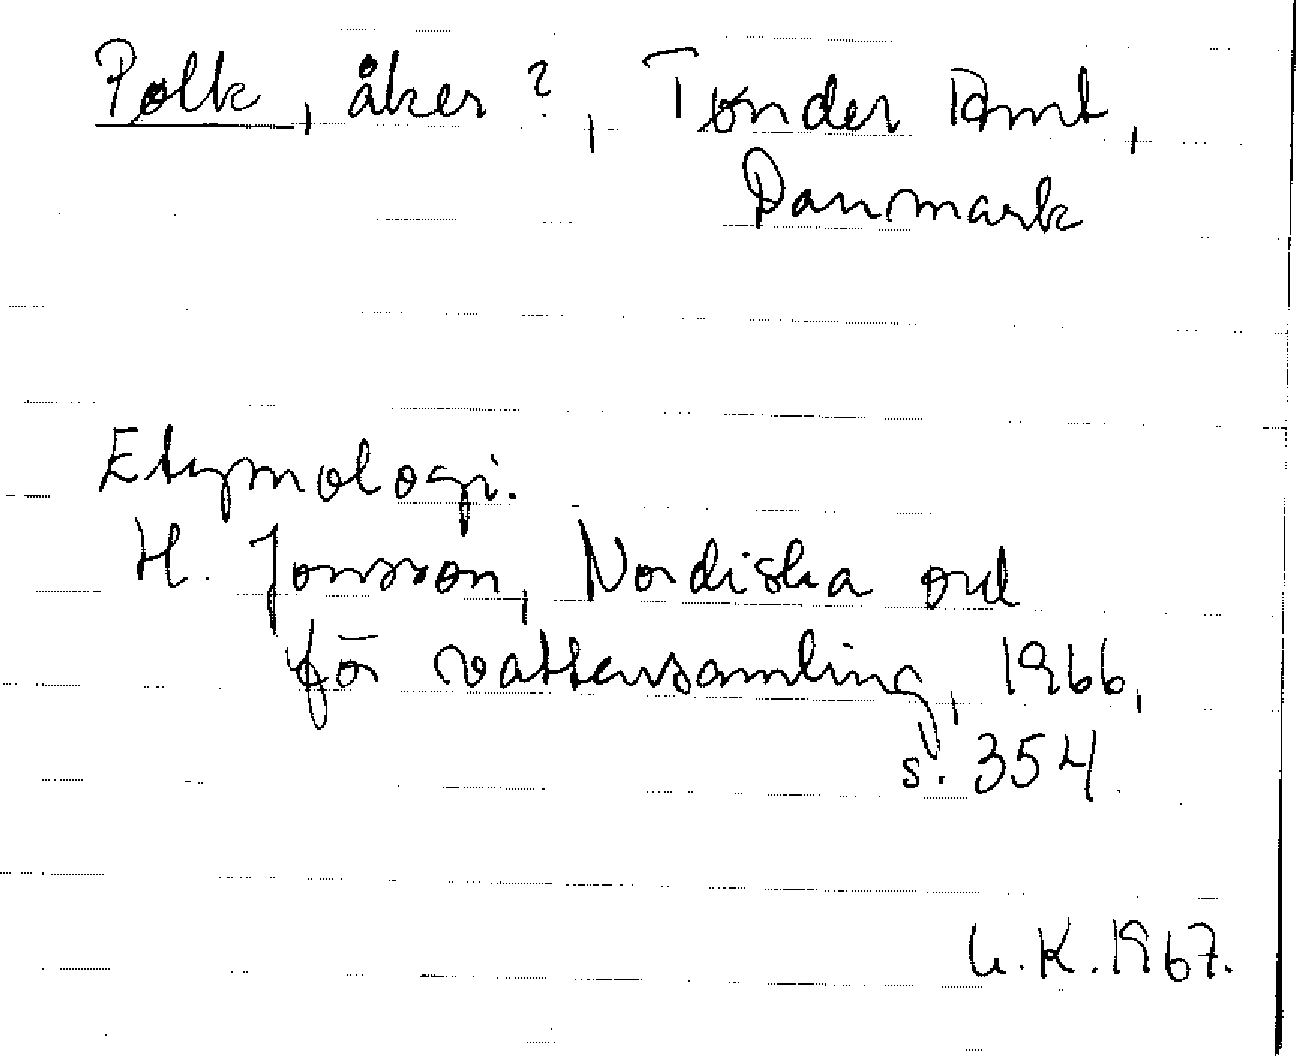 Polk, åker?, Tønder Amt,
Danmark
Etymologi.
H. Jonsson, Nordiska ord
för vattensamling, 1966,
s. 354
G.K. 1967.